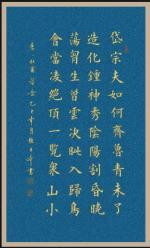 岱宗夫如何齊魯青未了
造化鍾神秀陰陽割昏曉
蕩胷生曾雲決眥入歸鳥
會當凌絕頂一覽衆山小
唐杜甫